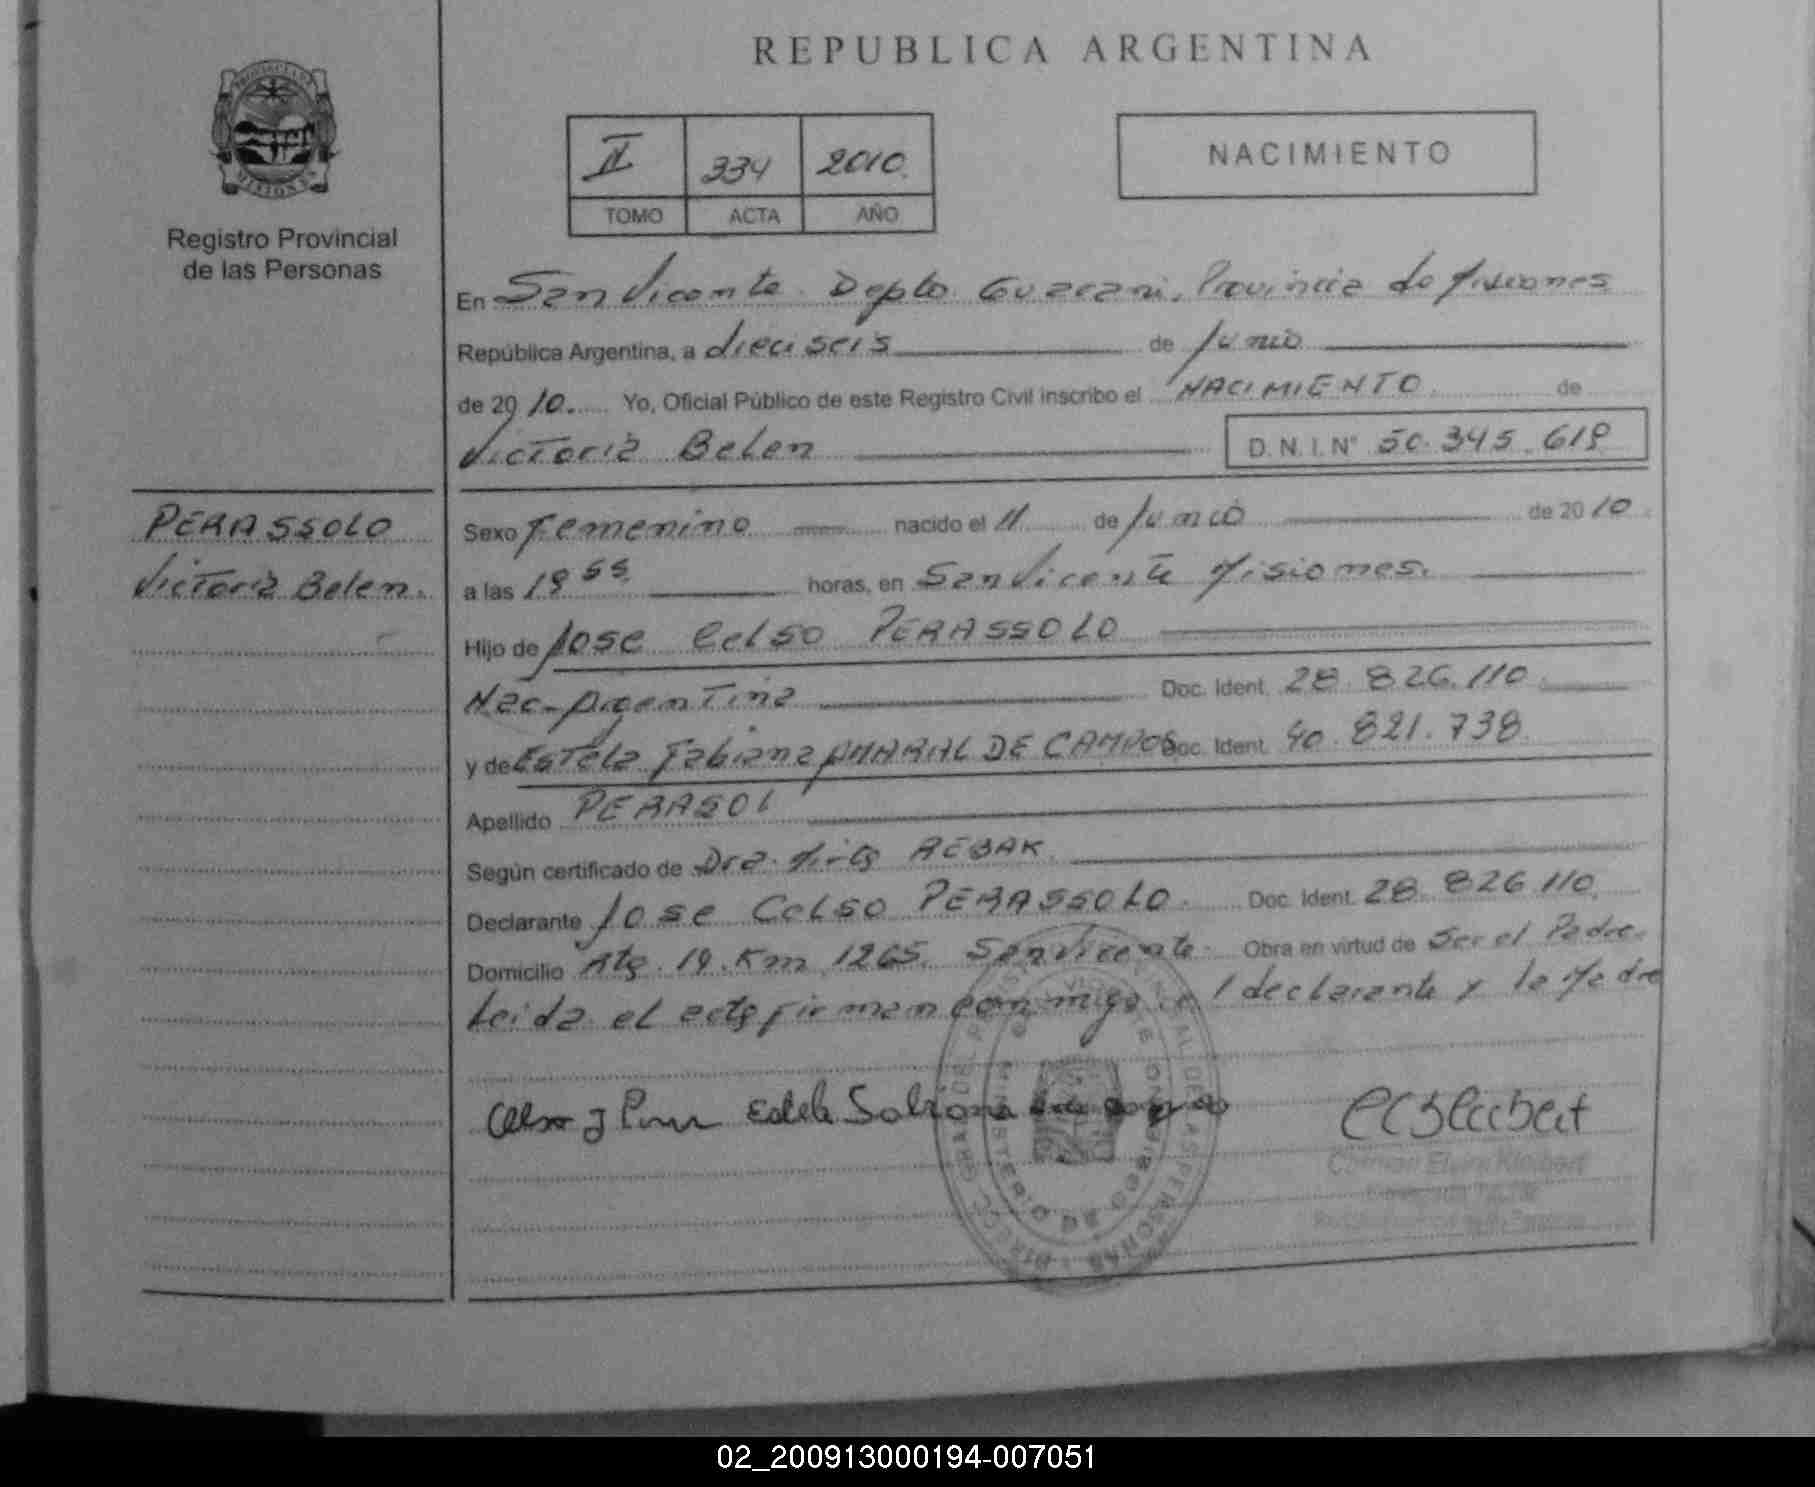 REPUBLICA ARGENTINA
PROVINCIA DE
MISIONES
Registro Provincial
de las Personas
II 334 2010.
TOMO ACTA AÑO
NACIMIENTO
En San Vicente Depto. Guarani, Provincia de Misiones
República Argentina, a dieciseis de Junio
de 2010. Yo, Oficial Público de este Registro Civil inscribo el NACIMIENTO. de
Victoria Belen D.N.I.N° 50.345.618
PERASSOLO
Victoria Belen.
Sexo Femenino nacido el 11 de Junio de 2010
a las 18 55 horas, en San Vicente Misiones.
Hijo de Jose Celso PERASSOLO
Nac. Argentina Doc. Ident. 28.826.110
y de Estela Fabiana AMARAL DE CAMPOS Doc. Ident. 40.821.738
Apellido PERASOL
Según certificado de Dra. Mirta
Declarante Jose Celso PERASSOLO. Doc. Ident. 28.826.110.
Domicilio Rta. 14. Km 1265. San Vicente. Obra en virtud de Ser el Padre.
Leida el acta firman conmigo el declarante y la Madre
Carmen Elvira Kleibert
02_200913000194-007051